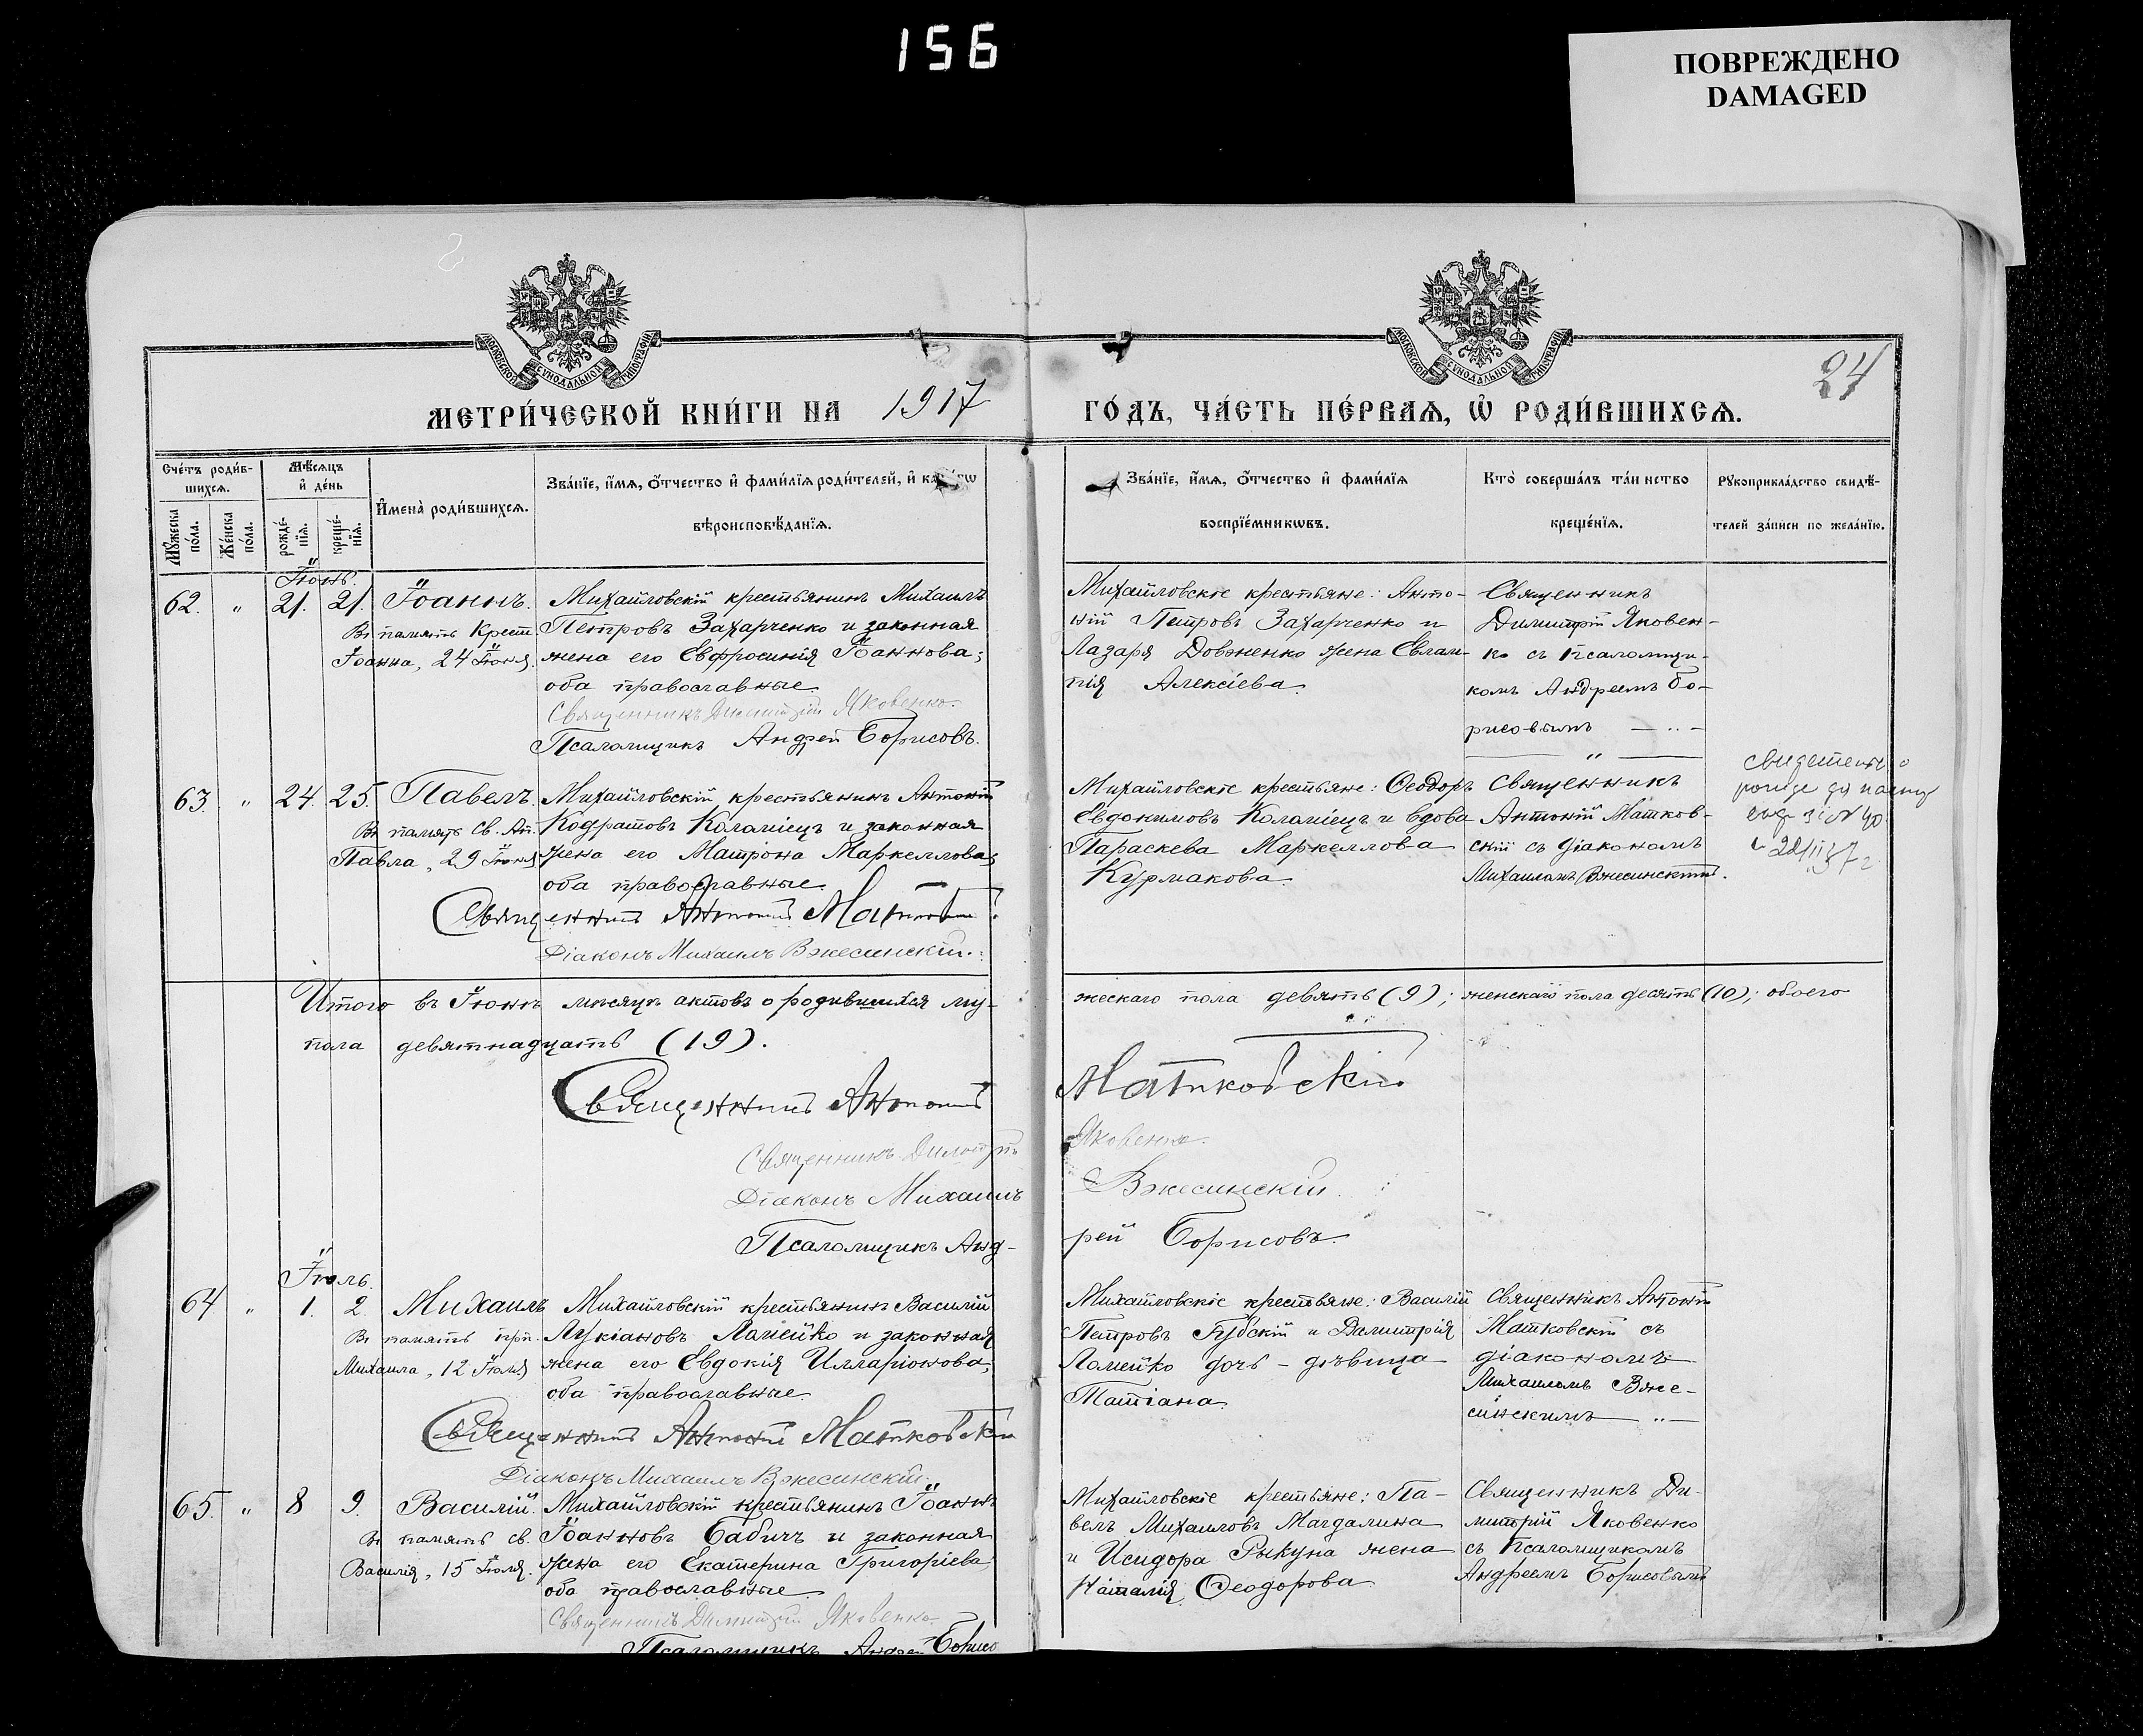 156
ПОВРЕЖДЕНО
DAMAGED
МОСКОВСКОЙ СѴНОДАЛЬНОЙ ТИПОГРАФІИ
МОСКОВСКОЙ СѴНОДАЛЬНОЙ ТИПОГРАФІИ
24
МЕТРИ́ЧЕСКОЙ КНИ́ГИ НА 1917
ГО́ДЪ, ЧА́СТЬ ПЕ́РВАЯ, Ѡ҆ РОДИ́ВШИХСЯ.
Сче́тъ роди́в-
шихся.
Мѣ́сяцъ
и҆ де́нь
Му́жеска по́ла.
Же́нска по́ла.
рожде́-
нїя.
креще́-
нїя.
И҆мена̀ роди́вшихся.
Зва́нїе, и҆́мя, о҆́тчество и҆ фами́лїя роди́телей, и҆
вѣроисповѣ́данїя.
Зва́нїе, и҆́мя, о҆́тчество и҆ фами́лїя
воспрїе́мникωвъ.
Кто̀ соверша́лъ та́инство
креще́нїя.
Рꙋкоприкла́дство свидѣ́-
телей за́писи по жела́нїю.
Іюнь.
62. " 21. 21. Іоаннъ.
Въ память Крест.
Іоанна, 24 Іюня.
Михайловскій крестьянинъ Михаилъ
Петровъ Захарченко и законная
жена его Евфросинія Іоаннова;
оба православные.
Священникъ Димитрій Яковенко.
Псаломщикъ Андрей Борисовъ.
Михайловскіе крестьяне: Анто-
ній Петровъ Захарченко и
Лазаря Довженко жена Евлам-
пія Алексіева.
Священникъ
Димитрій Яковен-
ко съ псаломщи-
комъ Андреемъ Бо-
рисовымъ
63. " 24. 25. Павелъ.
Въ память Св. Ап.
Павла, 29 Іюня
Михайловскій крестьянинъ Антоній
Кодратовъ Коламіецъ и законная
жена его Матрона Маркеллова;
оба православные.
Священникъ Антоній Матковскій
Діаконъ Михаилъ Вжесинскій.
Михайловскіе крестьяне: Ѳеодоръ
Евдокимовъ Коламіецъ и вдова
Параскева Маркеллова
Курмакова.
Священникъ
Антоній Матков-
скій съ діакономъ
Михаиломъ Вжесинскимъ.
Итого въ Іюнѣ мѣсяцѣ актовъ о родившихся му-
жескаго пола девять (9); женскаго пола десять (10); обоего
пола девятнадцать (19).
Священникъ Антоній Матковскій
Священникъ Димитрій Яковенко.
Діаконъ Михаилъ Вжесинскій.
Псаломщикъ Анд-
рей Борисовъ.
Іюль.
64 " 1. 2. Михаилъ
Въ память прп.
Михаила, 12 Іюля
Михайловскій крестьянинъ Василій
Лукіановъ Ломейко и законная
жена его Евдокія Илларіонова;
оба православные.
Священникъ Антоній Матковскій
Діаконъ Михаилъ Вжесинскій.
Михайловскіе крестьяне: Василій
Петровъ Губскій и Димитрія
Ломейко дочь - дѣвица
Татіана.
Священникъ Антоній
Матковскій съ
діакономъ
Михаиломъ Вже-
синскимъ
65. " 8 9. Василій.
Въ память св.
Василія, 15 Іюля.
Михайловскій крестьянинъ Іоаннъ
Іоанновъ Бабичъ и законная
жена его Екатерина Григоріева;
оба православные.
Священникъ Димитрій Яковенко
Псаломщикъ Андрей Борисо
Михайловскіе крестьяне: Па-
велъ Михаиловъ Магдалина
и Исидора Рыкуна жена
Наталія Ѳеодорова.
Священникъ Ди-
митрій Яковенко
съ псаломщикомъ
Андреемъ Борисовымъ